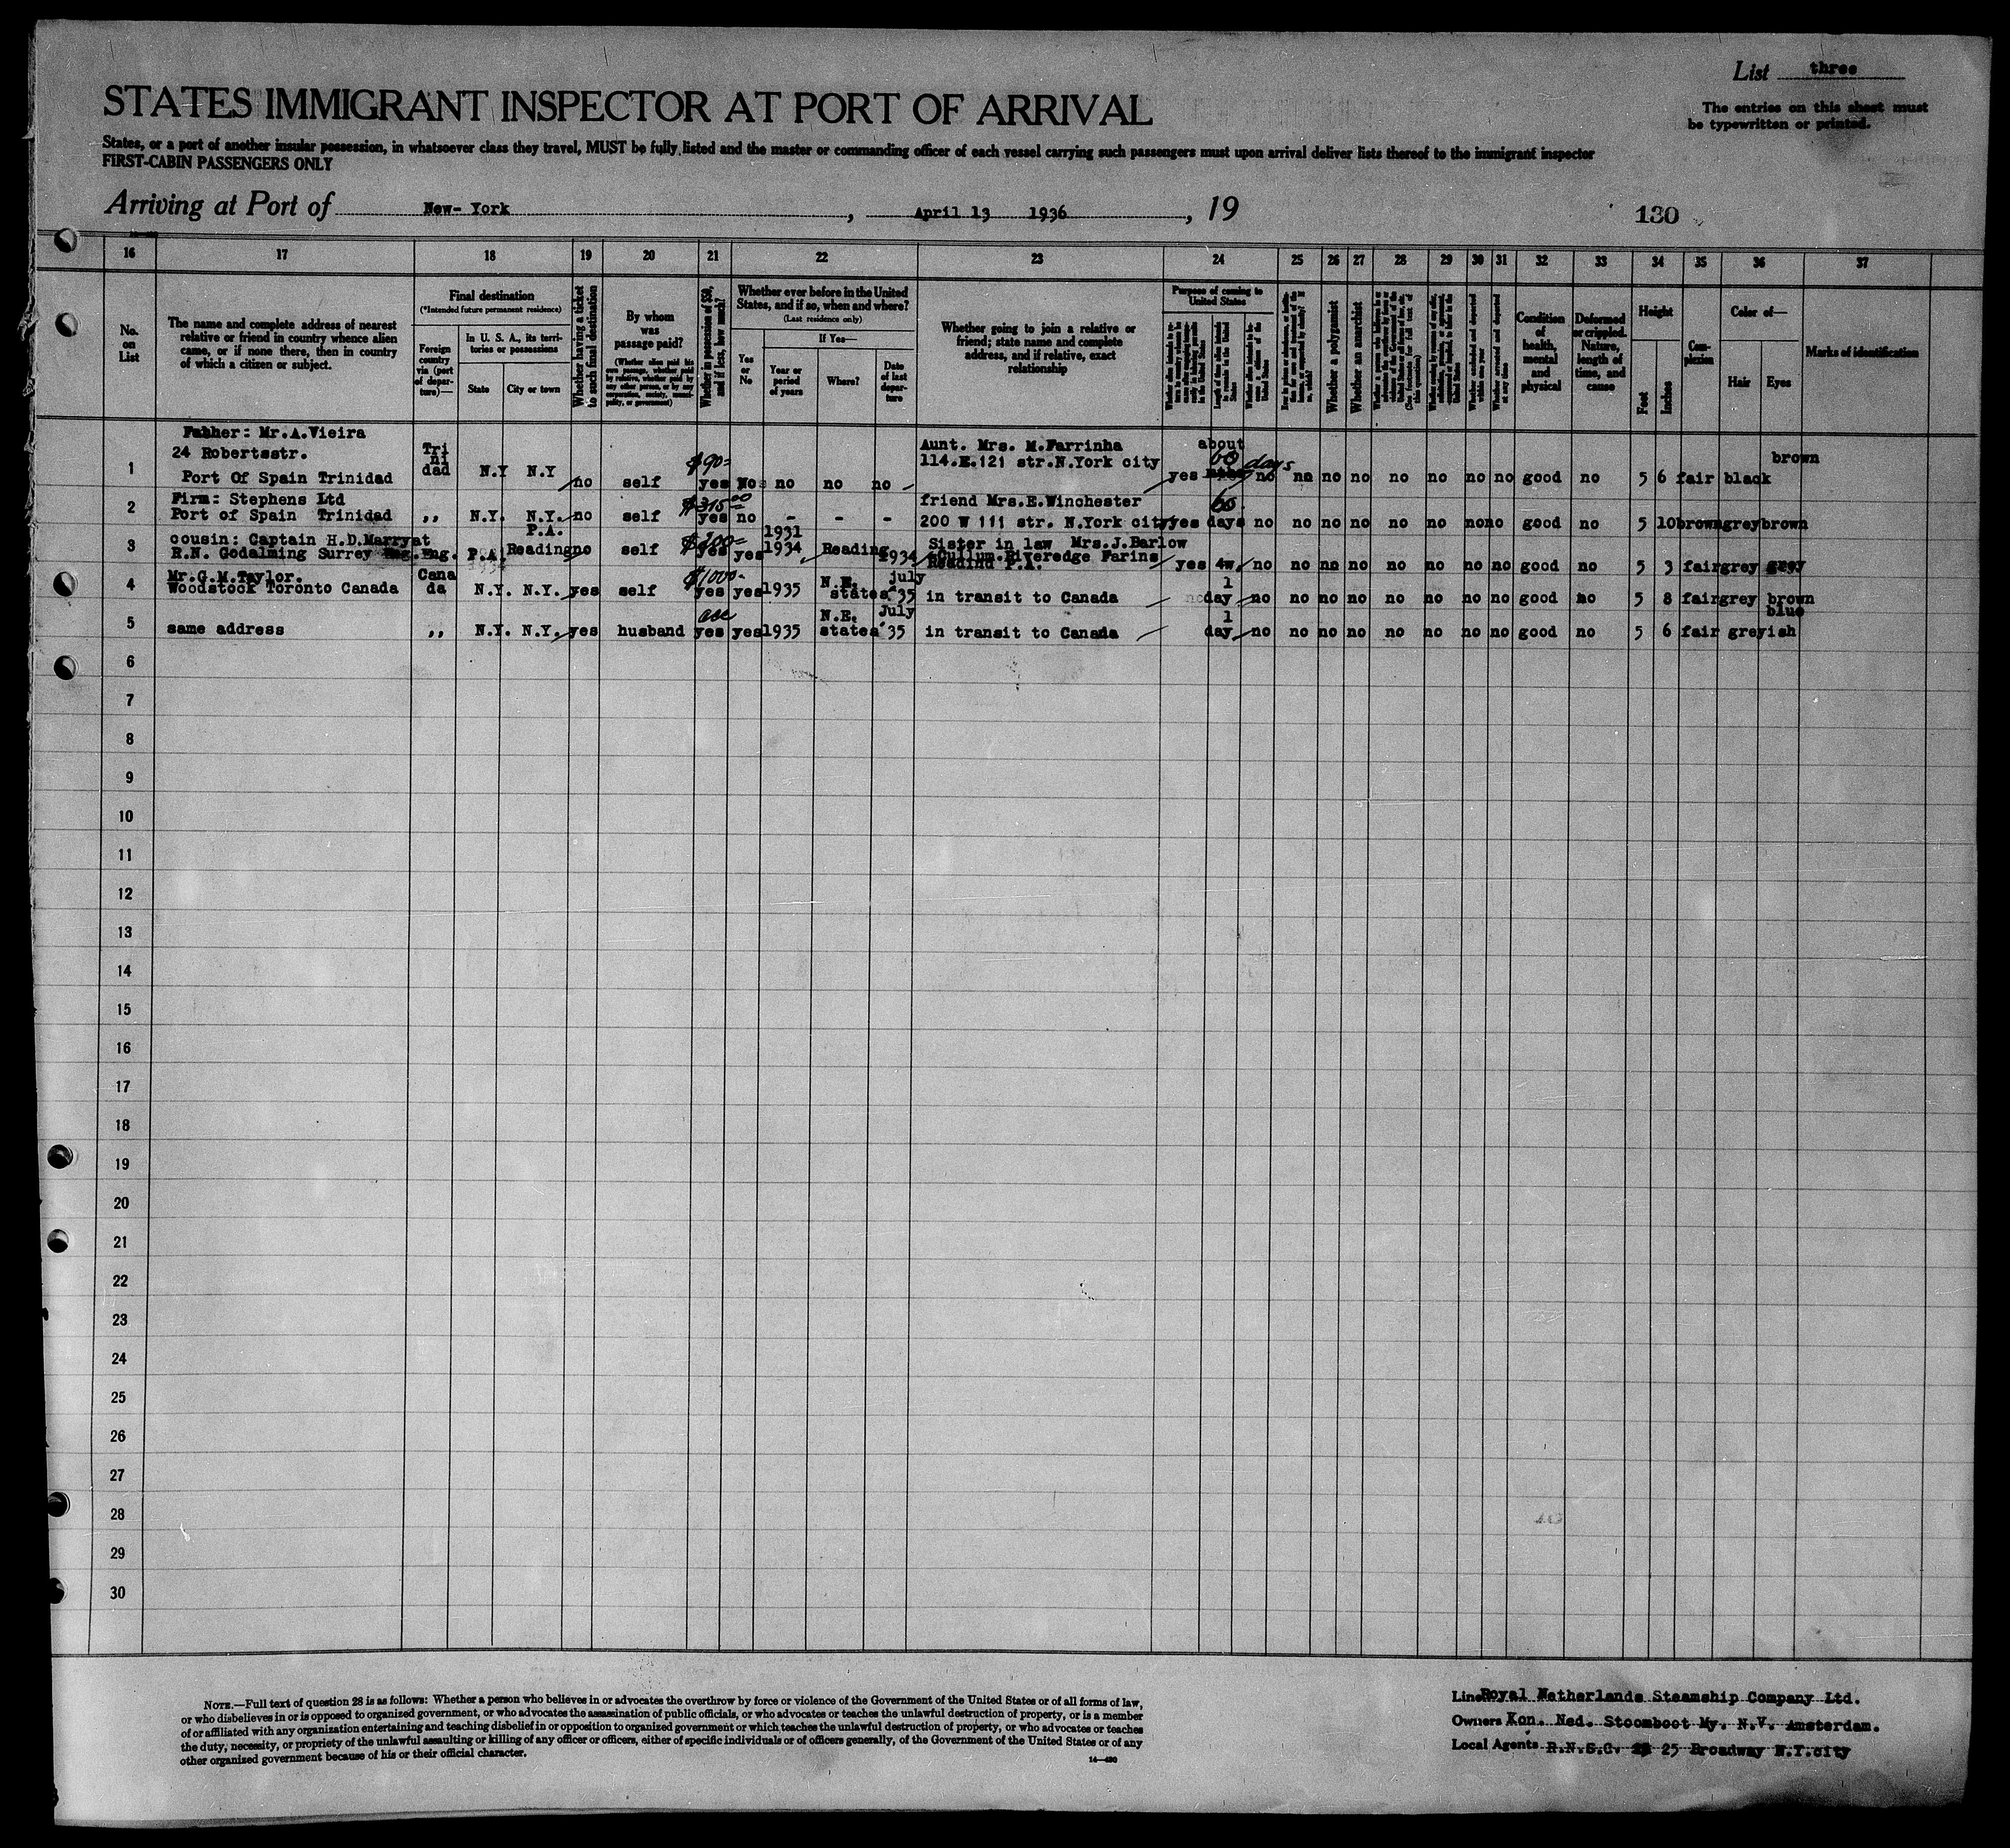 List three
STATES IMMIGRANT INSPECTOR AT PORT OF ARRIVAL
The entries on this sheet must
be typewritten or printed.
States, or a port of another insular possession, in whatsoever class they travel, MUST be fully listed and the master or commanding officer of each vessel carrying such passengers must upon arrival deliver lists thereof to the immigrant inspector
FIRST-CABIN PASSENGERS ONLY
Arriving at Port of New- York , April 13 1936 , 19
130
16 17 18 19 20 21 22 23 24 25 26 27 28 29 30 31 32 33 34 35 36 37
No.
on
List
The name and complete address of nearest
relative or friend in country whence alien
came, or if none there, then in country
of which a citizen or subject.
Final destination
(*Intended future permanent residence)
Foreign
country
via (port
of depar-
ture)—
In U. S. A., its terri-
tories or possessions
State City or town
Whether having a ticket
to such final destination
By whom
was
passage paid?
Whether in possession of $50,
and if less, how much?
Whether ever before in the United
States, and if so, when and where?
(Last residence only)
Yes
or
No
If Yes—
Year or
period
of years
Where?
Date
of last
depar-
ture
Whether going to join a relative or
friend; state name and complete
address, and if relative, exact
relationship
Purpose of coming to
United States
Whether a polygamist
Whether an anarchist
Condition
of
health,
mental
and
physical
Deformed
or crippled.
Nature,
length of
time, and
cause
Height
Feet Inches
Com-
plexion
Color of—
Hair Eyes
Marks of identification
1 Father: Mr.A.Vieira
24 Robertsstr.
Port Of Spain Trinidad
Tri
ni
dad
N.Y N.Y no self $90= yes No no no no
Aunt. Mrs. M.Farrinha
114.E.121 str.N.York city
about
60 days
yes no no no no no no no no good no 5 6 fair black brown
2 Firm: Stephens Ltd
Port of Spain Trinidad
,, N.Y. N.Y. no self $315.00 yes no - - -
friend Mrs.E.Winchester
200 W 111 str. N.York city
60
yes days no no no no no no no no good no 5 10 brown grey brown
3 cousin: Captain H.D.Marryat
R.N. Godalming Surrey Eng.
Eng. P.A. P.A.
Reading no self $200= yes yes 1931
1934 Reading 1934
Sister in law Mrs.J.Barlow
Cullum.Riveredge Farins
Readind P.A.
yes 4w. no no no no no no no no good no 5 3 fair grey grey
4 Mr.G.M.Taylor.
Woodstock Toronto Canada
Cana
da
N.Y. N.Y. yes self $1000- yes yes 1935 N.E.
states july
35 in transit to Canada
1
day no no no no no no no no good no 5 8 fair grey brown
5 same address ,, N.Y. N.Y. yes husband yes yes 1935 N.E.
states July
'35 in transit to Canada
1
day no no no no no no no no good no 5 6 fair grey blue
ish
6
7
8
9
10
11
12
13
14
15
16
17
18
19
20
21
22
23
24
25
26
27
28
29
30
NOTE.—Full text of question 28 is as follows: Whether a person who believes in or advocates the overthrow by force or violence of the Government of the United States or of all forms of law,
or who disbelieves in or is opposed to organized government, or who advocates the assassination of public officials, or who advocates or teaches the unlawful destruction of property, or is a member
of or affiliated with any organization entertaining and teaching disbelief in or opposition to organized government or which teaches the unlawful destruction of property, or who advocates or teaches
the duty, necessity, or propriety of the unlawful assaulting or killing of any officer or officers, either of specific individuals or of officers generally, of the Government of the United States or of any
other organized government because of his or their official character.
Line Royal Netherlands Steamship Company Ltd.
Owners Kon. Ned. Stoomboot My. N.V. Amsterdam.
Local Agents R.N.S.C. 25 Broadway N.Y.city